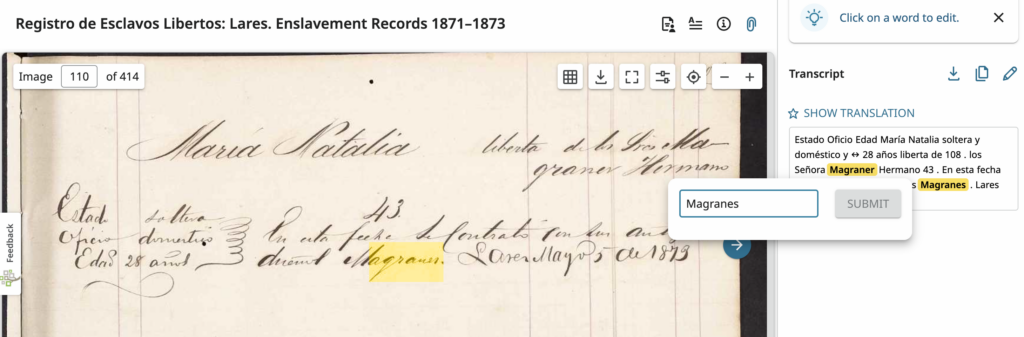 Registro de Esclavos Libertos: Lares. Enslavement Records 1871–1873
Image 110 of 414
María Natalia liberta de los Sres Ma-
graner Hermano
43.
Estado soltera
Oficio domestico
Edad 28 años
En esta fecha Contrató con sus
dueños Magraner. Lares Mayo 5 de 1873
Feedback
Click on a word to edit.
Transcript
SHOW TRANSLATION
Estado Oficio Edad María Natalia soltera y
doméstico y ↔ 28 años liberta de 108 . los
Señora Magraner Hermano 43 . En esta fecha
s Magranes . Lares
Magranes
SUBMIT